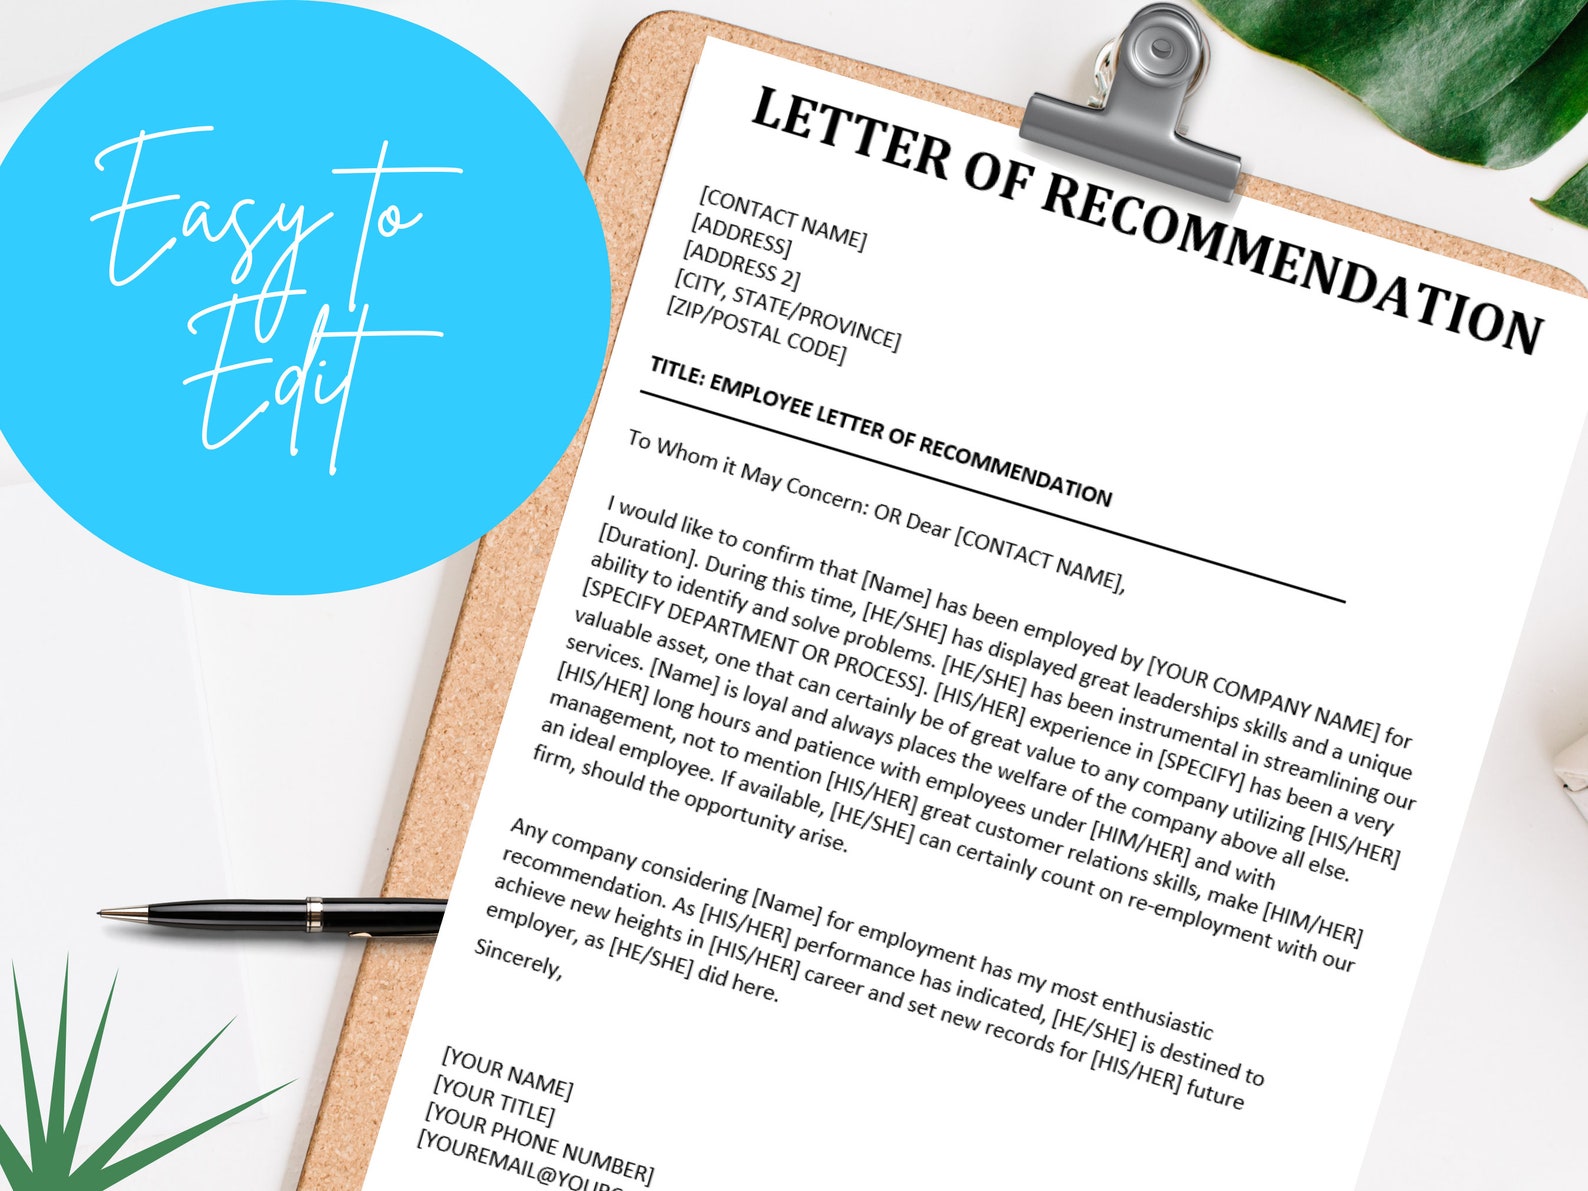 Easy to
Edit
LETTER OF RECOMMENDATION
[CONTACT NAME]
[ADDRESS]
[ADDRESS 2]
[CITY, STATE/PROVINCE]
[ZIP/POSTAL CODE]
TITLE: EMPLOYEE LETTER OF RECOMMENDATION
To Whom it May Concern: OR Dear [CONTACT NAME],
I would like to confirm that [Name] has been employed by [YOUR COMPANY NAME] for
[Duration]. During this time, [HE/SHE] has displayed great leaderships skills and a unique
ability to identify and solve problems. [HE/SHE] has been instrumental in streamlining our
[SPECIFY DEPARTMENT OR PROCESS]. [HIS/HER] experience in [SPECIFY] has been a very
valuable asset, one that can certainly be of great value to any company utilizing [HIS/HER]
services. [Name] is loyal and always places the welfare of the company above all else.
[HIS/HER] long hours and patience with employees under [HIM/HER] and with
management, not to mention [HIS/HER] great customer relations skills, make [HIM/HER]
an ideal employee. If available, [HE/SHE] can certainly count on re-employment with our
firm, should the opportunity arise.
Any company considering [Name] for employment has my most enthusiastic
recommendation. As [HIS/HER] performance has indicated, [HE/SHE] is destined to
achieve new heights in [HIS/HER] career and set new records for [HIS/HER] future
employer, as [HE/SHE] did here.
Sincerely,
[YOUR NAME]
[YOUR TITLE]
[YOUR PHONE NUMBER]